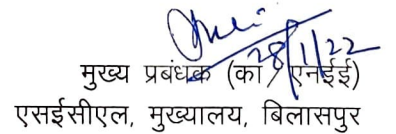 28/1/22
मुख्य प्रबंधक (का / एनईई)
एसईसीएल, मुख्यालय, बिलासपुर